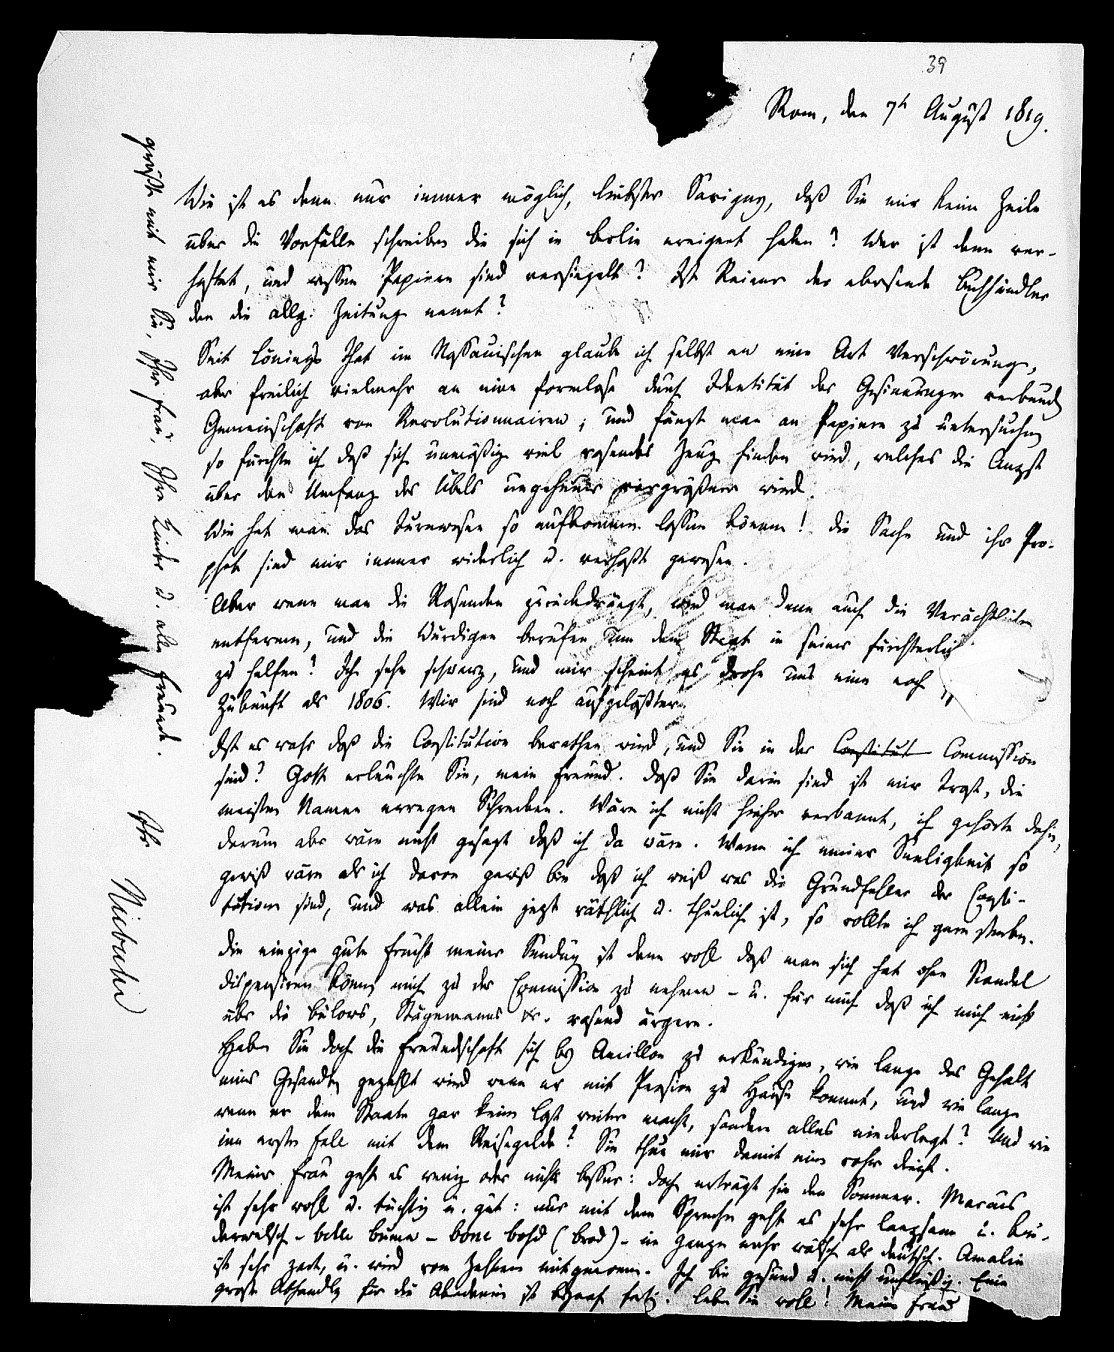 39
Rom, den 7t August 1819.
Wie ist es denn nur immer möglich, liebster Savigny, daß Sie mir keine Zeile
über die Vorfälle schreiben die sich in Berlin ereignet haben? Wer ist denn ver-
haftet, und wessen Papiere sind versiegelt? Ist Reimer der abwesende Buchhändler
den die allg: Zeitung nennt?
Seit Lönings That im Nassauischen glaube ich selbst an eine Art Verschwörung,
aber freilich vielmehr an eine formlose durch Identität der Gesinnungen verbund
Gemeinschaft von Revolutionnairen; und fängt man an Papiere zu untersuchen
so fürchte ich daß sich unmäßig viel rasendes Zeug finden wird, welches die Angst
über den Umfang des Übels ungeheuer vergrößern wird.
Wie hat man das Turnwesen so aufkommen lassen können! die Sache und ihr Pro-
phet sind mir immer widerlich u. verhaßt gewesen.
Aber wenn man die Rasenden zurückdrängt, wird man dann auch die Verächtlichen
entfernen, und die Würdigen berufen um dem Staat in seiner fürchterlich
zu helfen? Ich sehe schwarz, und mir scheint es drohe uns eine noch
Zukunft als 1806. Wir sind noch aufgelößter.
Ist es wahr daß die Constitution berathen wird, und Sie in der Constitut Commission
sind? Gott erleuchte Sie, mein Freund. Daß Sie darin sind ist mir Trost, die
meisten Namen erregen Schrecken. Wäre ich nicht hieher verbannt, ich gehörte dahin,
darum aber wäre nicht gesagt daß ich da wäre. Wenn ich meiner Seeligkeit so
gewiß wäre als ich davon gewiß bin daß ich weiß was die Grundfehler der Consti-
tutionen sind, und was allein jezt räthlich u. thunlich ist, so wollte ich gern sterben.
Die einzige gute Frucht meiner Sendung ist denn wohl daß man sich hat ohne Skandal
dispensiren können mich zu der Commission zu nehmen – u. für mich daß ich mich nicht
über die Bülows, Stägemanns &c. rasend ärgere.
Haben Sie doch die Freundschaft sich bey Ancillon zu erkundigen, wie lange das Gehalt
eines Gesandten gezahlt wird wenn er mit Pension zu Hause kommt, und wie lange
wenn er dem Staate gar keine Last weiter macht, sondern alles niederlegt? Und wie
im ersten Fall mit dem Reisegelde? Sie thun mir damit einen wahren Dienst.
Meiner Frau geht es wenig oder nicht besser: doch erträgt sie den Sommer. Marcus
ist sehr wohl u. tüchtig u. gut: nur mit dem Sprechen geht es sehr langsam u. kau-
derwelsch – belle bume – bone bohd (brod) – im Ganzen mehr wälsch als deutsch. Amalie
ist sehr zart, u. wird von Zähnen mitgenommen. Ich bin gesund u. nicht unfleißig. Eine
große Abhandlg für die Akademie ist fertig. Leben Sie wohl! Meine Frau
grüßt mit mir Sie, Ihre Frau, Ihre Kinder u. alle Freunde.
Ihr
Niebuhr